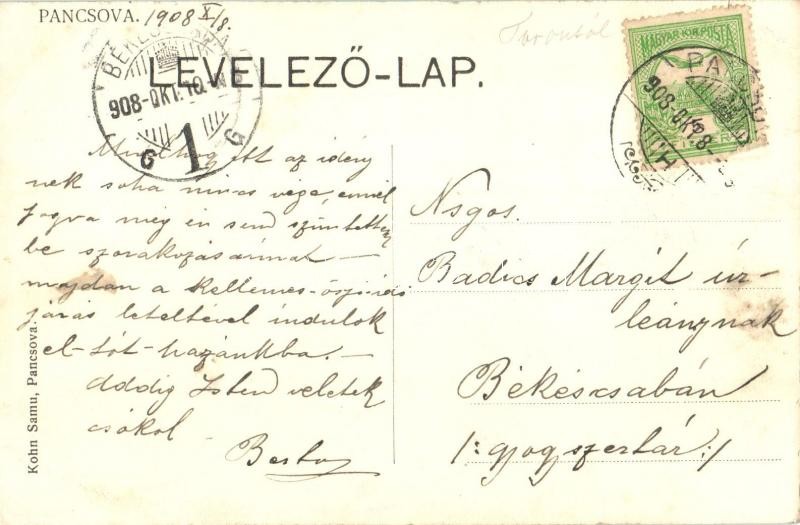 PANCSOVA. 1908 X/8.
LEVELEZŐ-LAP.
BÉKÉSCS
908-OKT.10
G 1 G
MAGYAR KIR. POSTA
PANCSOVA
908 OKT 8
itt az idény
nek soha nincs vége, ennél
fogva még én sem szüntettem
be szorakozásaimat —
majdan a kellemes őszi idő
járás leteltével indulok
el-tót-hazánkba. —
Addig Isten veletek
csókol
Berta
Nsgos.
Badics Margit úr-
leánynak
Békéscsabán
/: gyogyszertár :/
Kohn Samu, Pancsova.